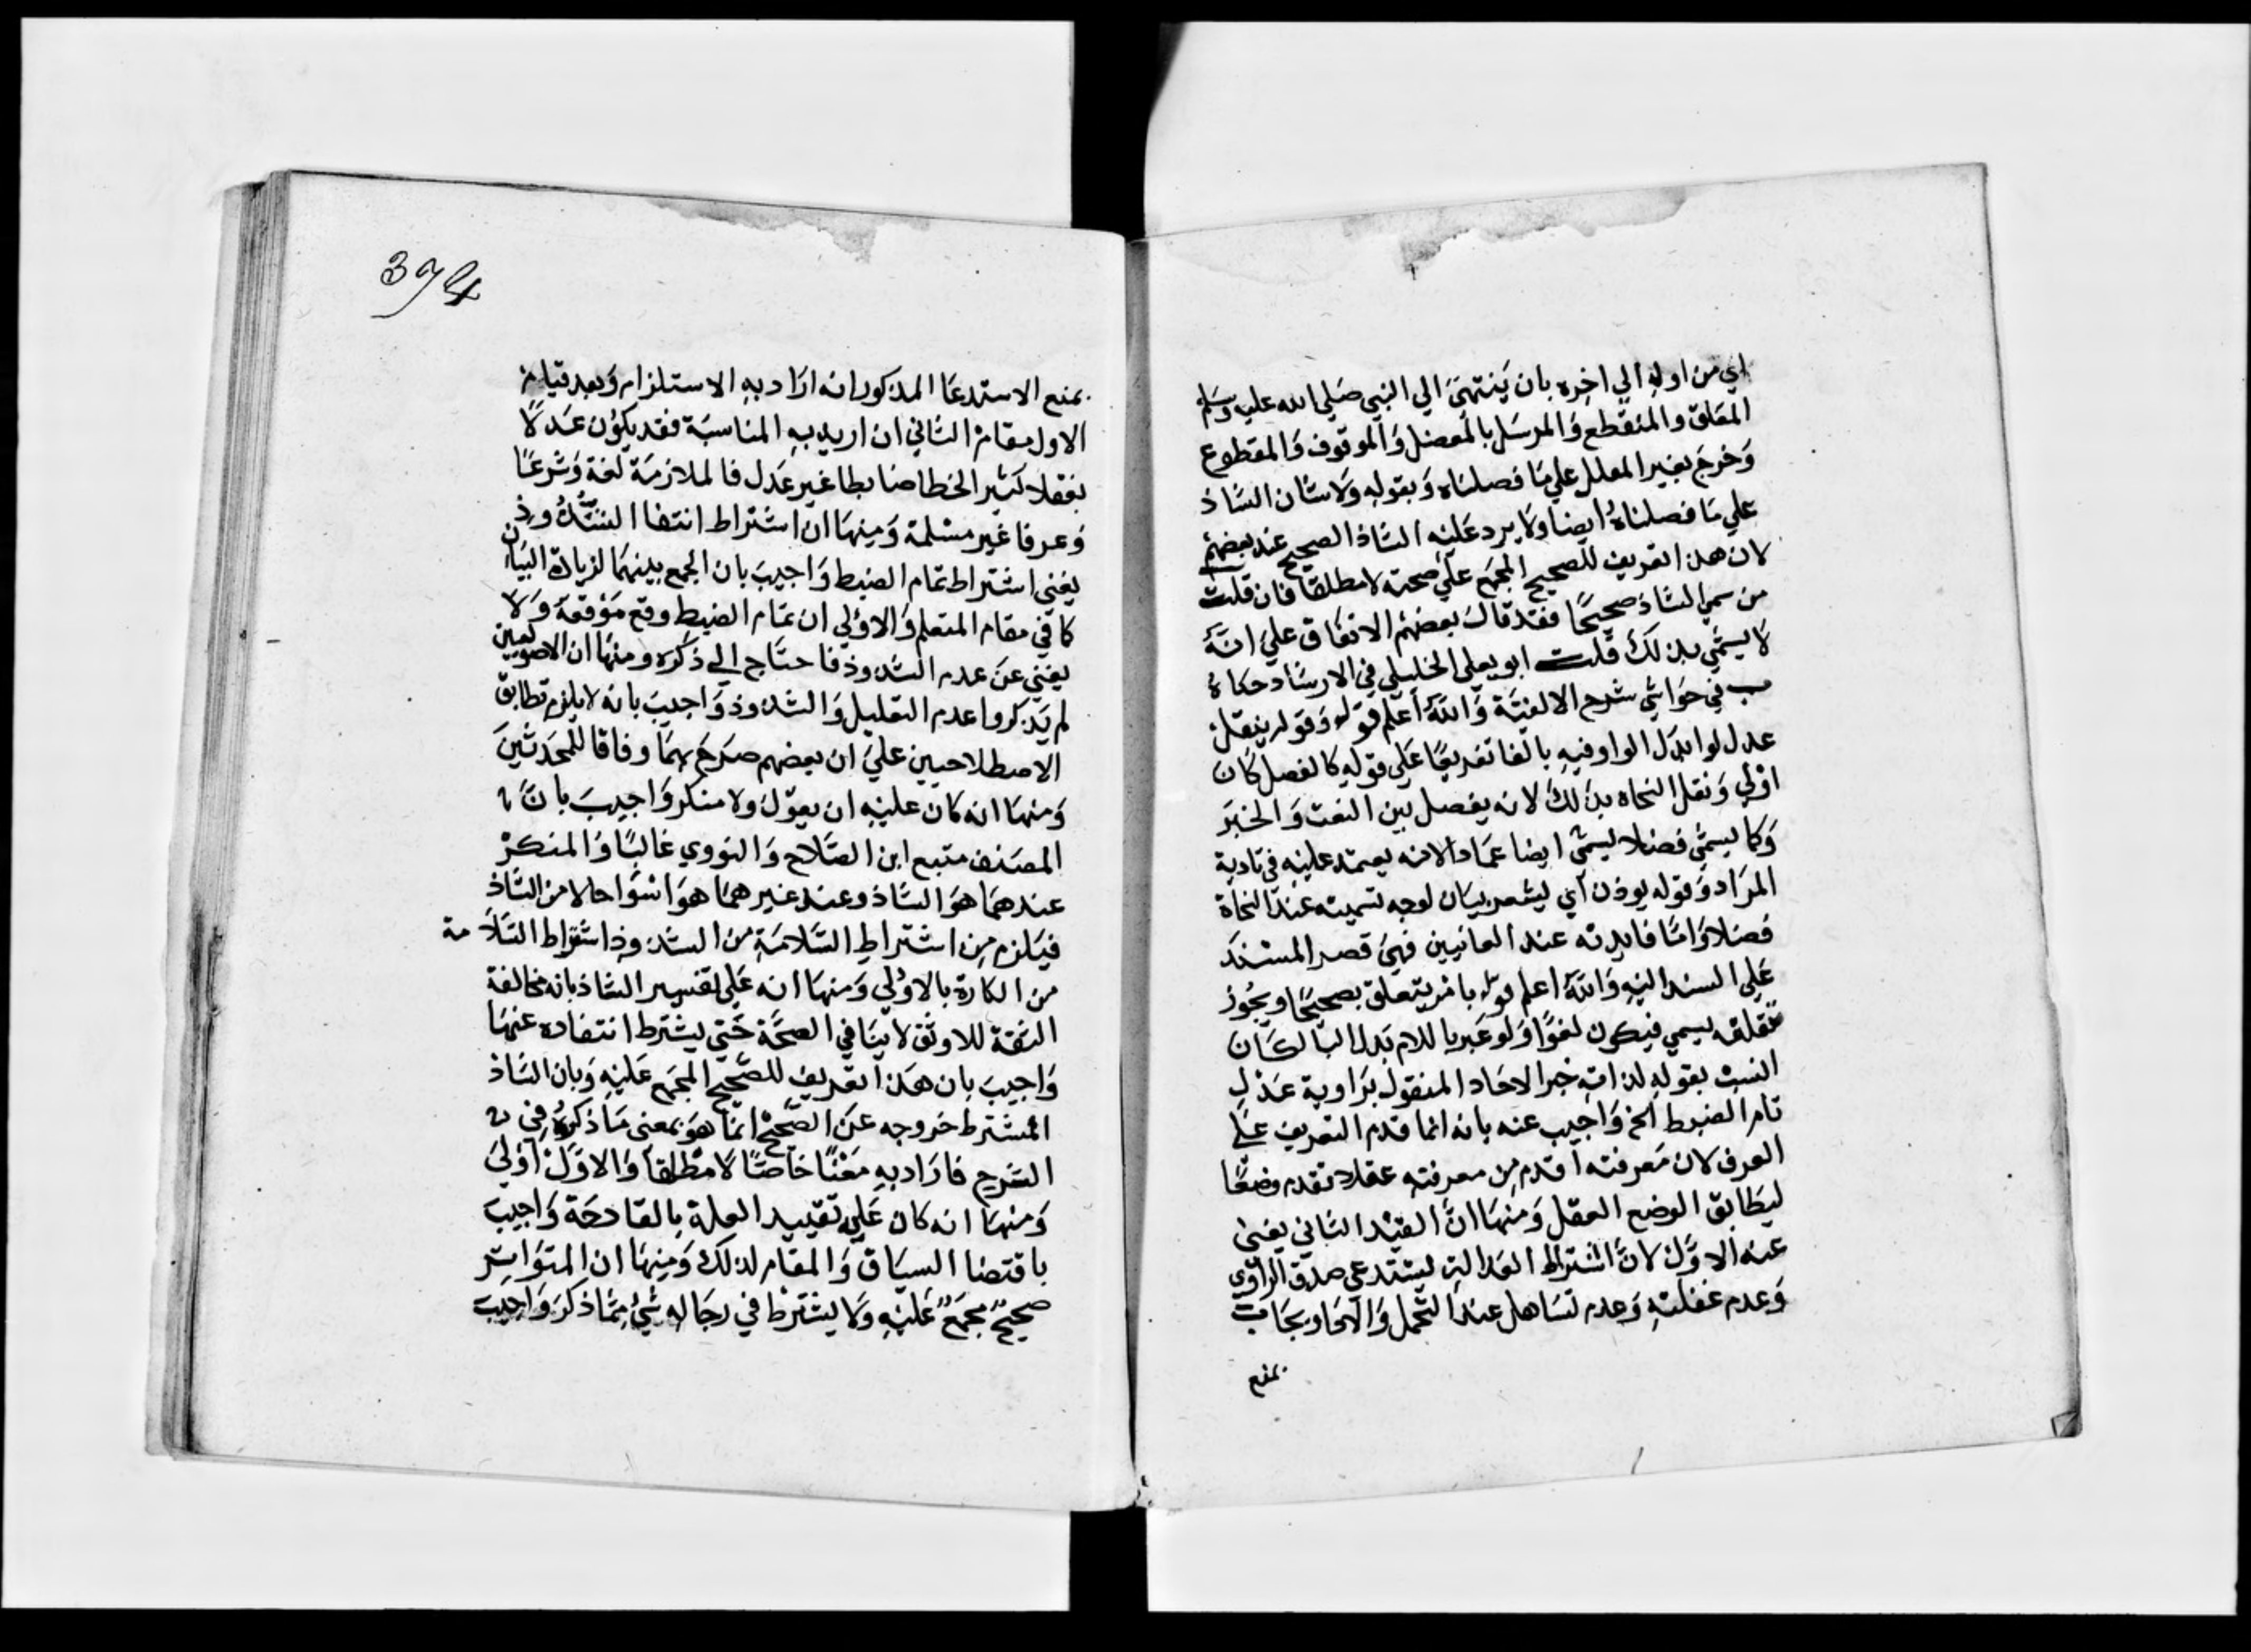 اي من اوله الي اخره بان ينتهي الي النبي صلي الله عليه وسلم
المعلق والمنقطع والمرسل بالمعضل والموقوف والمقطوع
وخرج بغير المعلل علي ما فصلناه وبقوله ولا شان الشاذ
علي ما فصلناه ايضا ولا يرد عليه الشاذ الصحيح عند بعضهم
لان هذا التعريف للصحيح المجمع علي صحته لا مطلقا فان قلت
من سمي الشاذ صحيحا فقد قال بعضهم الاتفاق علي انه
لا يسمي بذلك قلت ابو يعلي الخليلي في الارشاد حكاه
ب في حواشي شرح الالفية والله اعلم قوله وقوله بنقل
عدل لو ابدل الواو فيه بالفا تفريعا علي قوله كالفصل كان
اولي ونقل النحاه بذلك لانه يفصل بين النعت والخبر
وكما يسمي فصلا يسمي ايضا عمادا لانه يعتمد عليه في تادية
المراد وقوله يوذن اي يشعر بيان لوجه تسميته عند النحاة
فصلا واما فايدته عند المعانيين فهي قصر المسند
علي السند اليه والله اعلم قوله بامر يتعلق بصحيحا ويجوز
تعلقه بيسمي فيكون لغوا ولو عبر باللام بدل البا لكان
انسب بقوله لذاته خبر الاحاد المنقول براوية عدل
تام الضبط الخ واجيب عنه بانه انما قدم التعريف علي
المعرف لان معرفته اقدم من معرفته عقلا تقدم وضعا
ليطابق الوضع العقل ومنها ان القيد الثاني يغني
عنه الاول لان اشتراط العدالة يستدعي صدق الراوي
وعدم غفلته وعدم تساهل عند التحمل والاحاد يجاب
بمنع
394
بمنع الاستدعا المذكور انه اراد به الاستلزام وبعد قيام
الاول مقام الثاني ان اريد به المناسبة فقد يكون عدلا
بغفلا كثير الخطا ضابطا غير عدل فالملازمة لغة وشرعا
وعرفا غير مسلمة ومنها ان اشتراط انتفا الشذوذ
يغني اشتراط تمام الضبط واجيب بان الجمع بينهما لزيادة البيان
كما في مقام المتعلم والاولي ان تمام الضبط وقع موقعه ولا
يغني عن عدم الشذوذ فاحتاج الي ذكره ومنها ان الاصوليين
لم يذكروا عدم التعليل والشذوذ واجيب بانه لا يلزم تطابق
الاصطلاحيين علي ان بعضهم صرح بهما وفاقا للمحدثين
ومنها انه كان عليه ان يقول ولا منكر واجيب بان
المصنف متبع ابن الصلاح والنووي غالبا والمنكر
عندهما هو الشاذ وعند غيرهما هو اسوا حالا من الشاذ
فيلزم من اشتراط السلامة من الشذوذ اشتراط السلامة
من النكارة بالاولي ومنها انه علي تفسير الشاذ بانه مخالفة
الثقة للاوثق لا ينافي الصحة حتي يشترط انتفاده عنها
واجيب بان هذا تعريف للصحيح المجمع عليه وبان الشاذ
المشترط خروجه عن الصحيح انما هو بمعني ما ذكره في
الشرح فاراد به معنا خاصا لا مطلقا والاول اولي
ومنها انه كان عليه تقييد العلة بالقادحة واجيب
باقتضا السياق والمقام لذلك ومنها ان المتواتر
صحيح مجمع عليه ولا يشترط في رجاله شيء مما ذكر واجيب